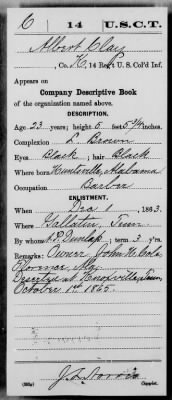 C 14 U.S.C.T.
Albert Clay
, Co. H, 14 Reg't U. S. Col'd Inf.
Appears on
Company Descriptive Book
of the organization named above.
DESCRIPTION.
Age 23 years; height 5 feet 5 3/4 inches.
Complexion L. Brown
Eyes Black ; hair Black
Where born Huntsville, Alabama
Occupation Barber
ENLISTMENT.
When Dec 1 , 1863.
Where Gallatin, Tenn
By whom N.P. Dunlap ; term 3 y'rs.
Remarks: Owner John H. Cole
Florence Ala.
Deserted at Knoxville, Tenn,
October 1st 1865.
Copyist.